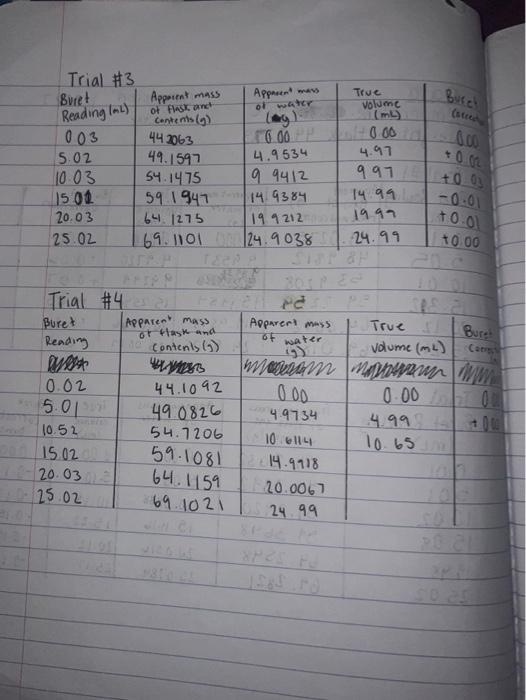 Trial #3
Buret Reading (mL) Apparent mass of flask and contents (g) Apparent mass of water (g) True Volume (mL) Buret
0.03 44.2063 0.00 0.00 0.00
5.02 49.1597 4.9534 4.97 +0.02
10.03 54.1475 9.9412 9.97 +0.03
15.01 59.1947 14.9384 14.99 -0.01
20.03 64.1275 19.9212 19.99 +0.01
25.02 69.1101 24.9038 24.99 +0.00
Trial #4
Buret Reading Apparent mass of flask and contents (g) Apparent mass of water (g) True volume (mL) Buret
0.02 44.1092 0.00 0.00
5.01 49.0826 4.9734 4.99
10.52 54.7206 10.6114 10.65
15.02 59.1081 14.9918
20.03 64.1159 20.0067
25.02 69.1021 24.99